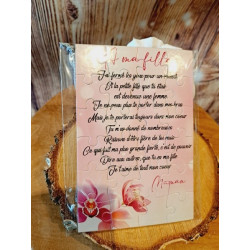 À ma fille
J'ai fermé les yeux pour un instant
Et la petite fille que tu étais
est devenue une femme
Je ne peux plus te porter dans mes bras
Mais je te porterai toujours dans mon cœur
Tu m'as donné de nombreuses
Raisons d'être fière de toi mais
Ce qui fait ma plus grande fierté, c'est de pouvoir
Dire aux autres, que tu es ma fille
Je t'aime de tout mon cœur
Maman